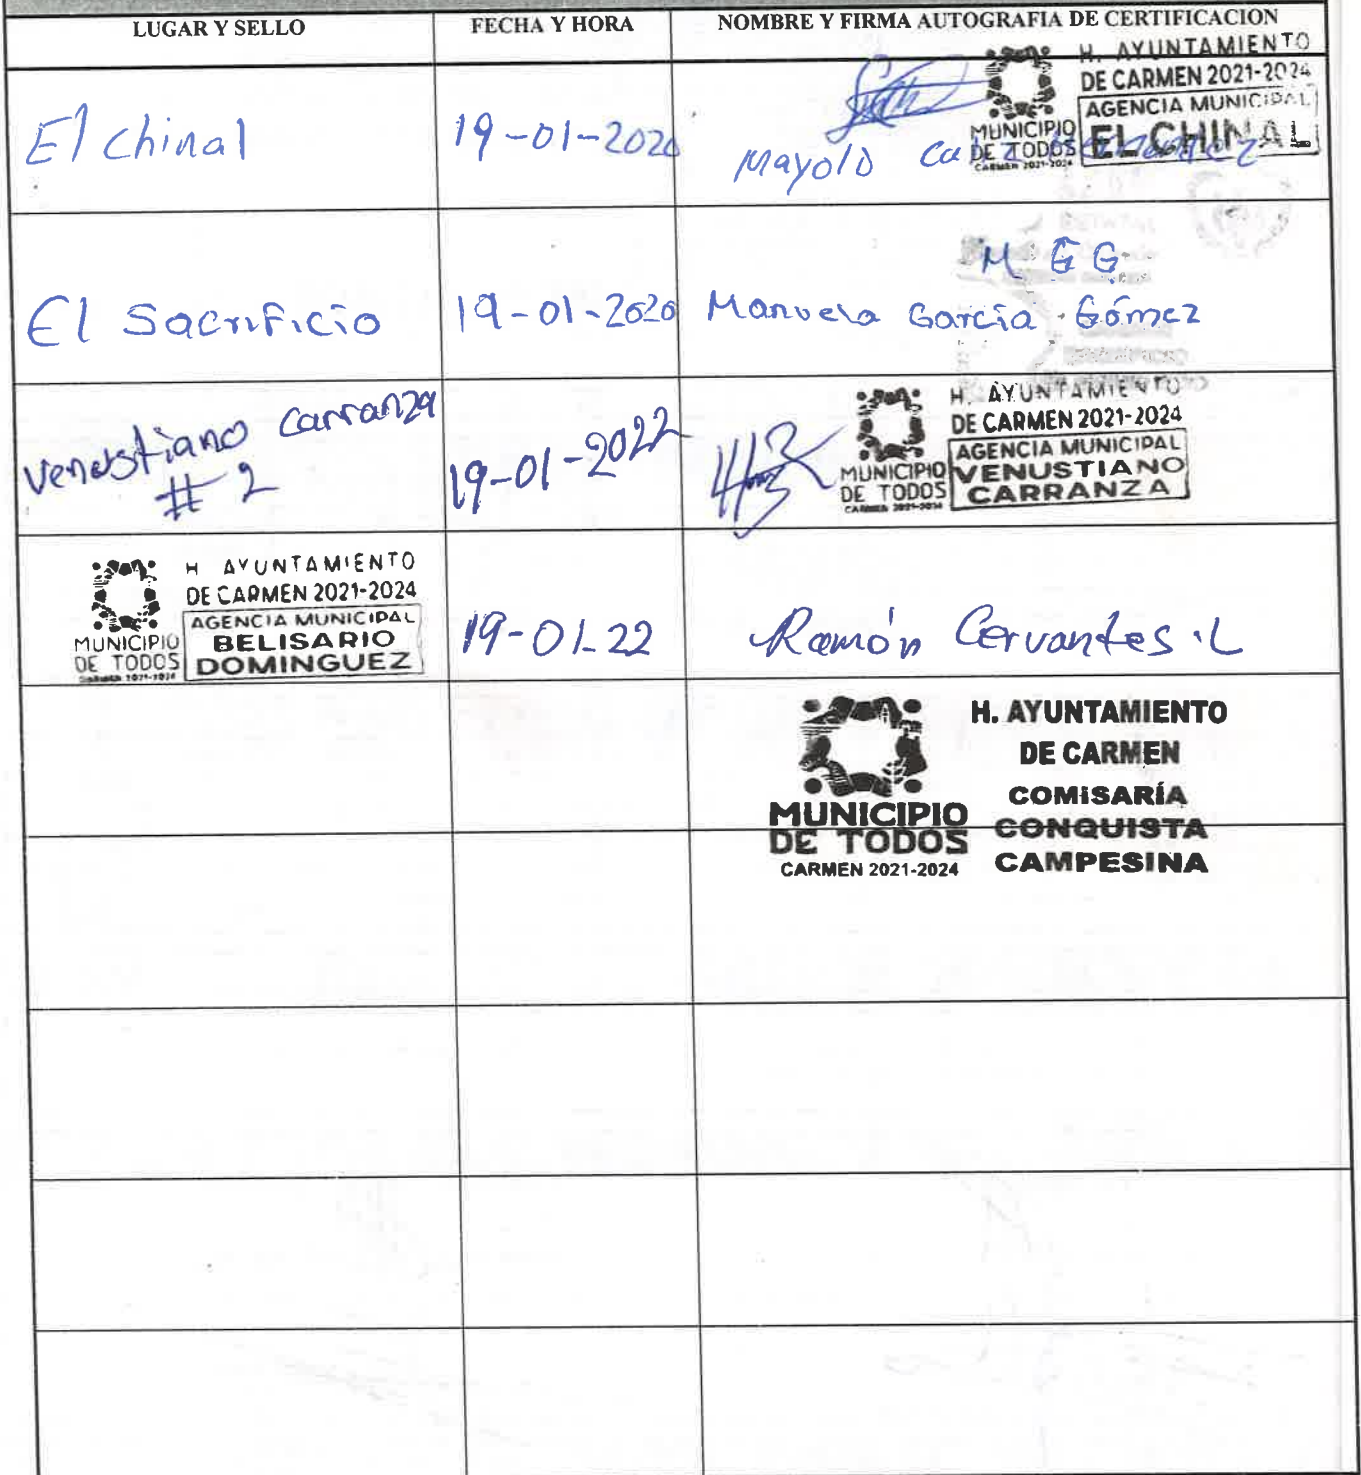 LUGAR Y SELLO
FECHA Y HORA
NOMBRE Y FIRMA AUTOGRAFIA DE CERTIFICACION
El chinal
19-01-2020
H. AYUNTAMIENTO
DE CARMEN 2021-2024
AGENCIA MUNICIPAL
EL CHINAL
MUNICIPIO
DE TODOS
CARMEN 2021-2024
Mayolo
El Sacrificio
19-01-2020
M G G
Manuela García Gómez
Venustiano Carranza
# 2
19-01-2022
H. AYUNTAMIENTO
DE CARMEN 2021-2024
AGENCIA MUNICIPAL
VENUSTIANO
CARRANZA
MUNICIPIO
DE TODOS
CARMEN 2021-2024
H AYUNTAMIENTO
DE CARMEN 2021-2024
AGENCIA MUNICIPAL
BELISARIO
DOMINGUEZ
MUNICIPIO
DE TODOS
CARMEN 2021-2024
19-01-22
Ramón Cervantes .L
H. AYUNTAMIENTO
DE CARMEN
COMISARÍA
CONQUISTA
CAMPESINA
MUNICIPIO
DE TODOS
CARMEN 2021-2024